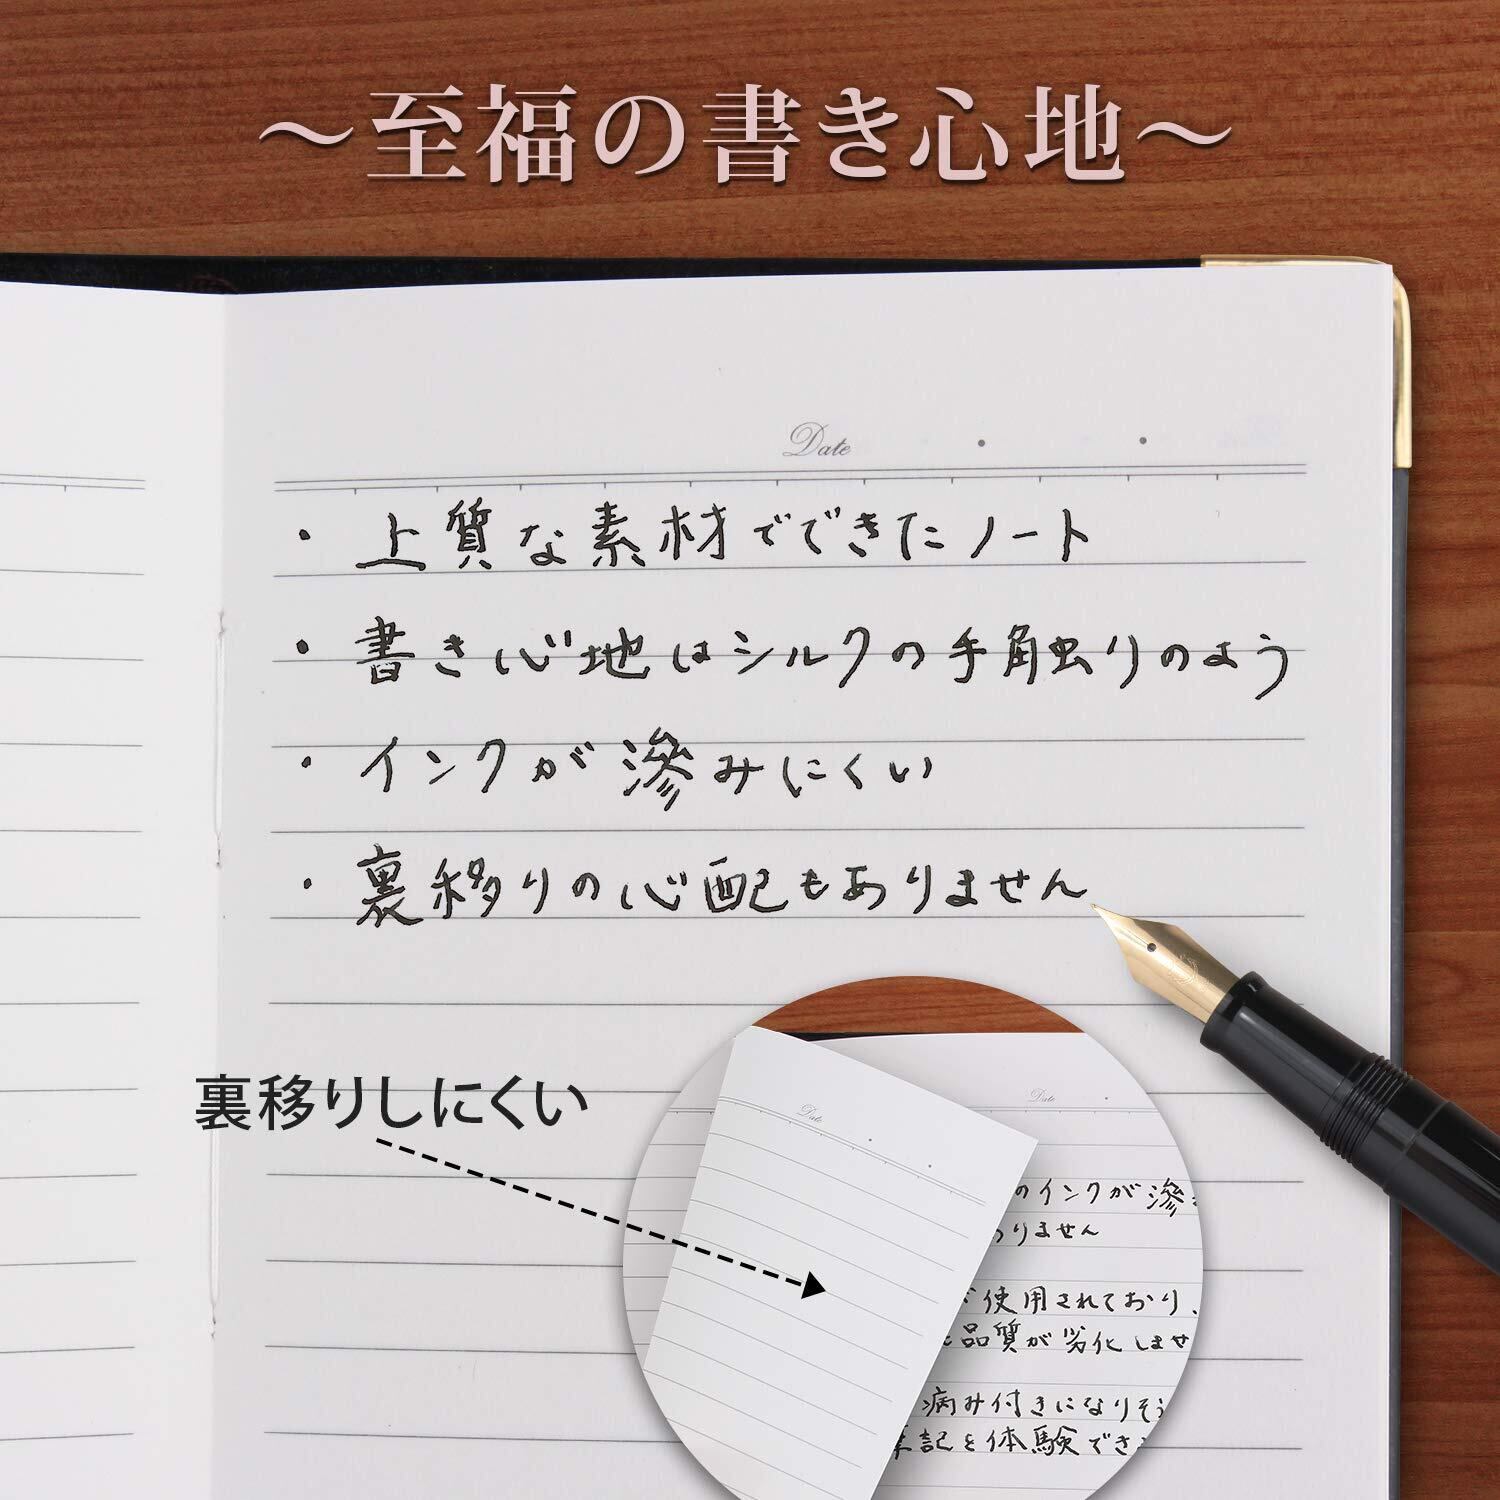 〜至福の書き心地〜
Date
・上質な素材でできたノート
・書き心地はシルクの手触りのよう
・インクが滲みにくい
・裏移りの心配もありません
裏移りしにくい
Date
Date
のインクが滲
りません
使用されており、
品質が劣化しませ
病み付きになりそう
記を体験でき